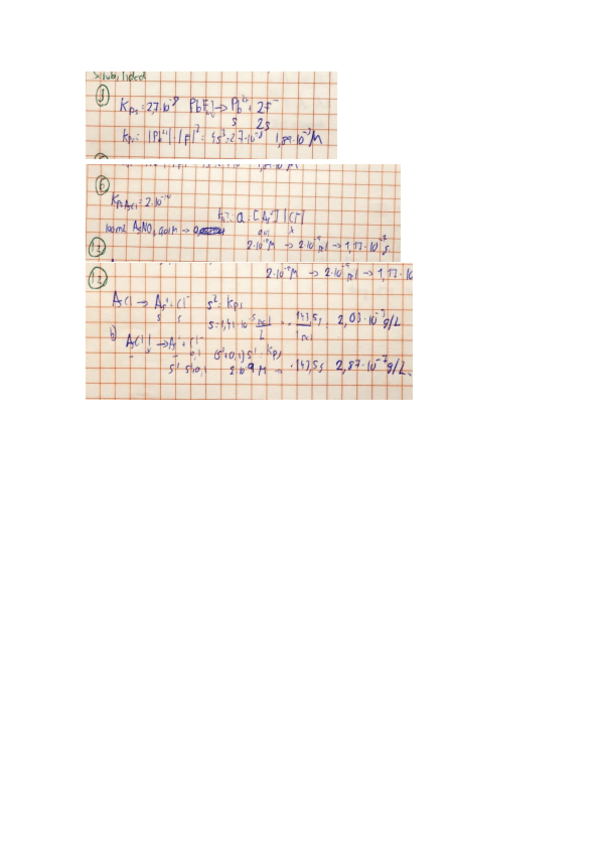 Solubilidad
3
Kps=2,7·10⁻⁸ PbF₂ → Pb²⁺ + 2F⁻
s 2s
Kps= |Pb²⁺|·|F⁻|² = 4s³=2,7·10⁻⁸ 1,89·10⁻³M
6
Kps AgCl=2·10⁻¹⁰
[Ag⁺]|Cl⁻|
100mL AgNO₃ 0,01M → 0,01 x
12 2·10⁻⁸M → 2·10⁻⁹mol → 1,17·10⁻⁷g.
12 2·10⁻⁸M → 2·10⁻⁹mol → 1,17·10
AgCl → Ag⁺ + Cl⁻ s²=Kps
s s s=1,41·10⁻⁵ mol/L · 143,5g/1mol = 2,03·10⁻³g/L
b) AgCl↓ → Ag⁺ + Cl⁻
0,1 (s'+0,1)s'=Kps
s' s'+0,1 2·10⁻⁹M → ·143,5g 2,87·10⁻⁷g/L.